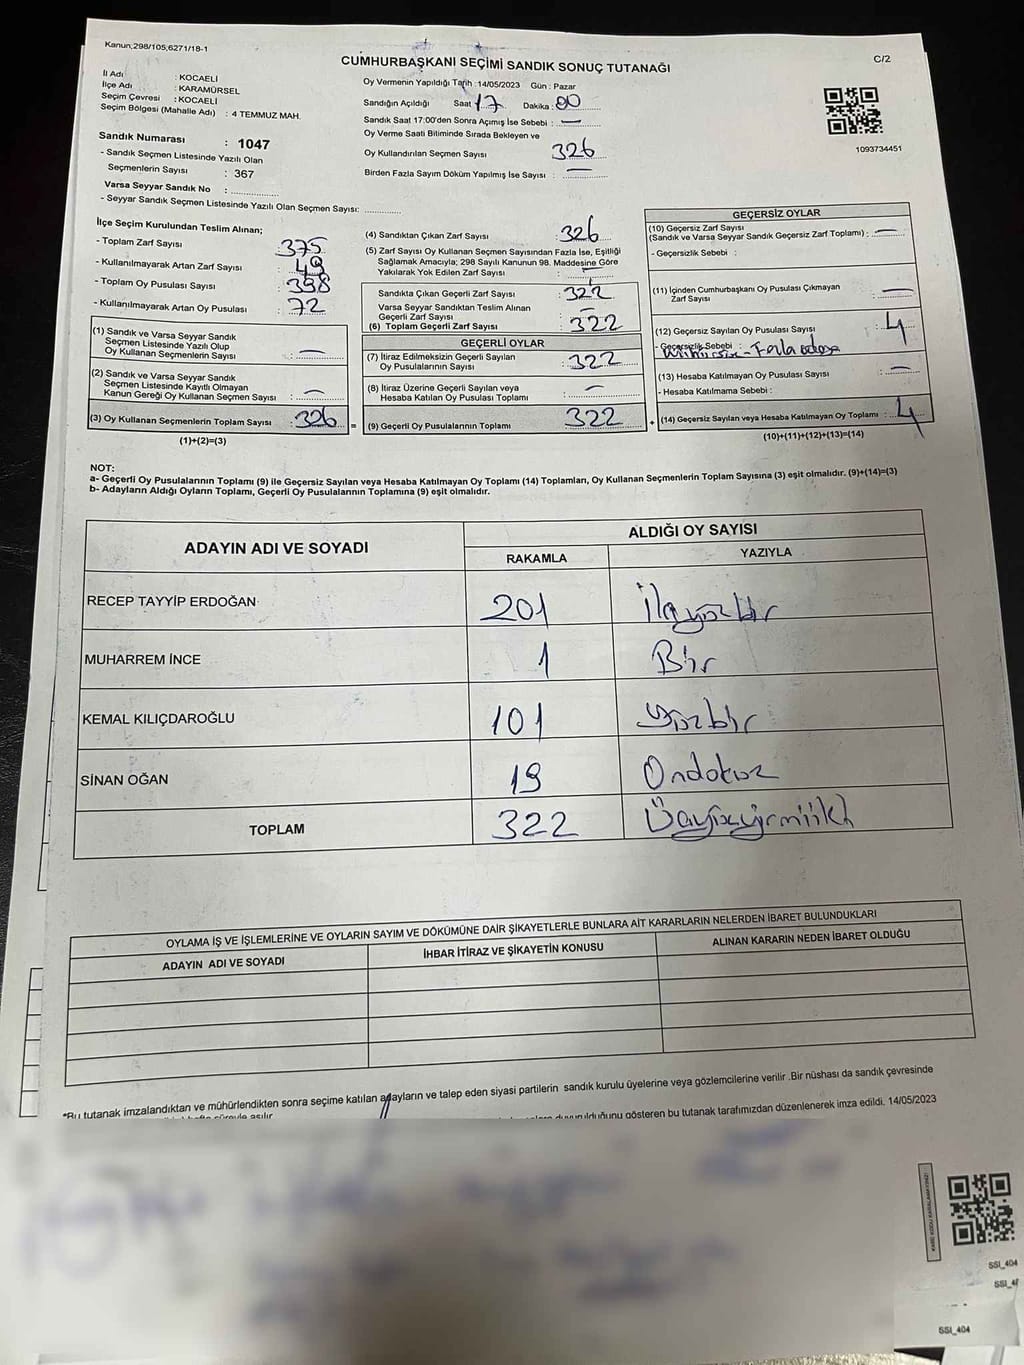 Kanun,298/105,6271/18-1
CUMHURBAŞKANI SEÇİMİ SANDIK SONUÇ TUTANAĞI
C/2
İl Adı : KOCAELİ
İlçe Adı : KARAMÜRSEL
Seçim Çevresi : KOCAELİ
Seçim Bölgesi (Mahalle Adı) : 4 TEMMUZ MAH.
Sandık Numarası : 1047
- Sandık Seçmen Listesinde Yazılı Olan
Seçmenlerin Sayısı : 367
Varsa Seyyar Sandık No :
- Seyyar Sandık Seçmen Listesinde Yazılı Olan Seçmen Sayısı:
Oy Vermenin Yapıldığı Tarih :14/05/2023 Gün : Pazar
Sandığın Açıldığı Saat 17 Dakika : 00
Sandık Saat 17:00'den Sonra Açmış İse Sebebi : —
Oy Verme Saati Bitiminde Sırada Bekleyen ve
Oy Kullandırılan Seçmen Sayısı 326
Birden Fazla Sayım Döküm Yapılmış İse Sayısı : —
1093734451
İlçe Seçim Kurulundan Teslim Alınan;
- Toplam Zarf Sayısı : 375
- Kullanılmayarak Artan Zarf Sayısı : 49
- Toplam Oy Pusulası Sayısı : 398
- Kullanılmayarak Artan Oy Pusulası : 72
(1) Sandık ve Varsa Seyyar Sandık
Seçmen Listesinde Yazılı Olup
Oy Kullanan Seçmenlerin Sayısı : —
(2) Sandık ve Varsa Seyyar Sandık
Seçmen Listesinde Kayıtlı Olmayan
Kanun Gereği Oy Kullanan Seçmen Sayısı : —
(3) Oy Kullanan Seçmenlerin Toplam Sayısı : 326
(1)+(2)=(3)
(4) Sandıktan Çıkan Zarf Sayısı : 326
(5) Zarf Sayısı Oy Kullanan Seçmen Sayısından Fazla İse, Eşitliği
Sağlamak Amacıyla; 298 Sayılı Kanunun 98. Maddesine Göre
Yakılarak Yok Edilen Zarf Sayısı : —
Sandıkta Çıkan Geçerli Zarf Sayısı : 322
Varsa Seyyar Sandıktan Teslim Alınan
Geçerli Zarf Sayısı : —
(6) Toplam Geçerli Zarf Sayısı : 322
GEÇERLİ OYLAR
(7) İtiraz Edilmeksizin Geçerli Sayılan
Oy Pusulalarının Sayısı : 322
(8) İtiraz Üzerine Geçerli Sayılan veya
Hesaba Katılan Oy Pusulası Toplamı : —
= (9) Geçerli Oy Pusulalarının Toplamı 322
GEÇERSİZ OYLAR
(10) Geçersiz Zarf Sayısı
(Sandık ve Varsa Seyyar Sandık Geçersiz Zarf Toplamı) : —
- Geçersizlik Sebebi :
(11) İçinden Cumhurbaşkanı Oy Pusulası Çıkmayan
Zarf Sayısı : —
(12) Geçersiz Sayılan Oy Pusulası Sayısı : 4
- Geçersizlik Sebebi : Mühürsüz - Fazla
(13) Hesaba Katılmayan Oy Pusulası Sayısı : —
- Hesaba Katılmama Sebebi :
+ (14) Geçersiz Sayılan veya Hesaba Katılmayan Oy Toplamı : 4
(10)+(11)+(12)+(13)=(14)
NOT:
a- Geçerli Oy Pusulalarının Toplamı (9) ile Geçersiz Sayılan veya Hesaba Katılmayan Oy Toplamı (14) Toplamları, Oy Kullanan Seçmenlerin Toplam Sayısına (3) eşit olmalıdır. (9)+(14)=(3)
b- Adayların Aldığı Oyların Toplamı, Geçerli Oy Pusulalarının Toplamına (9) eşit olmalıdır.
ADAYIN ADI VE SOYADI
ALDIĞI OY SAYISI
RAKAMLA YAZIYLA
RECEP TAYYİP ERDOĞAN 201 İkiyüzbir
MUHARREM İNCE 1 Bir
KEMAL KILIÇDAROĞLU 101 yüzbir
SİNAN OĞAN 19 Ondokuz
TOPLAM 322 Üçyüzyirmiiki
OYLAMA İŞ VE İŞLEMLERİNE VE OYLARIN SAYIM VE DÖKÜMÜNE DAİR ŞİKAYETLERLE BUNLARA AİT KARARLARIN NELERDEN İBARET BULUNDUKLARI
ADAYIN ADI VE SOYADI İHBAR İTİRAZ VE ŞİKAYETİN KONUSU ALINAN KARARIN NEDEN İBARET OLDUĞU
*Bu tutanak imzalandıktan ve mühürlendikten sonra seçime katılan adayların ve talep eden siyasi partilerin sandık kurulu üyelerine veya gözlemcilerine verilir .Bir nüshası da sandık çevresinde
hafta süreyle asılır duyurulduğunu gösteren bu tutanak tarafımızdan düzenlenerek imza edildi. 14/05/2023
KARE KODU KARALAMAYINIZ!
SSI_404
SSI_4
SSI_404